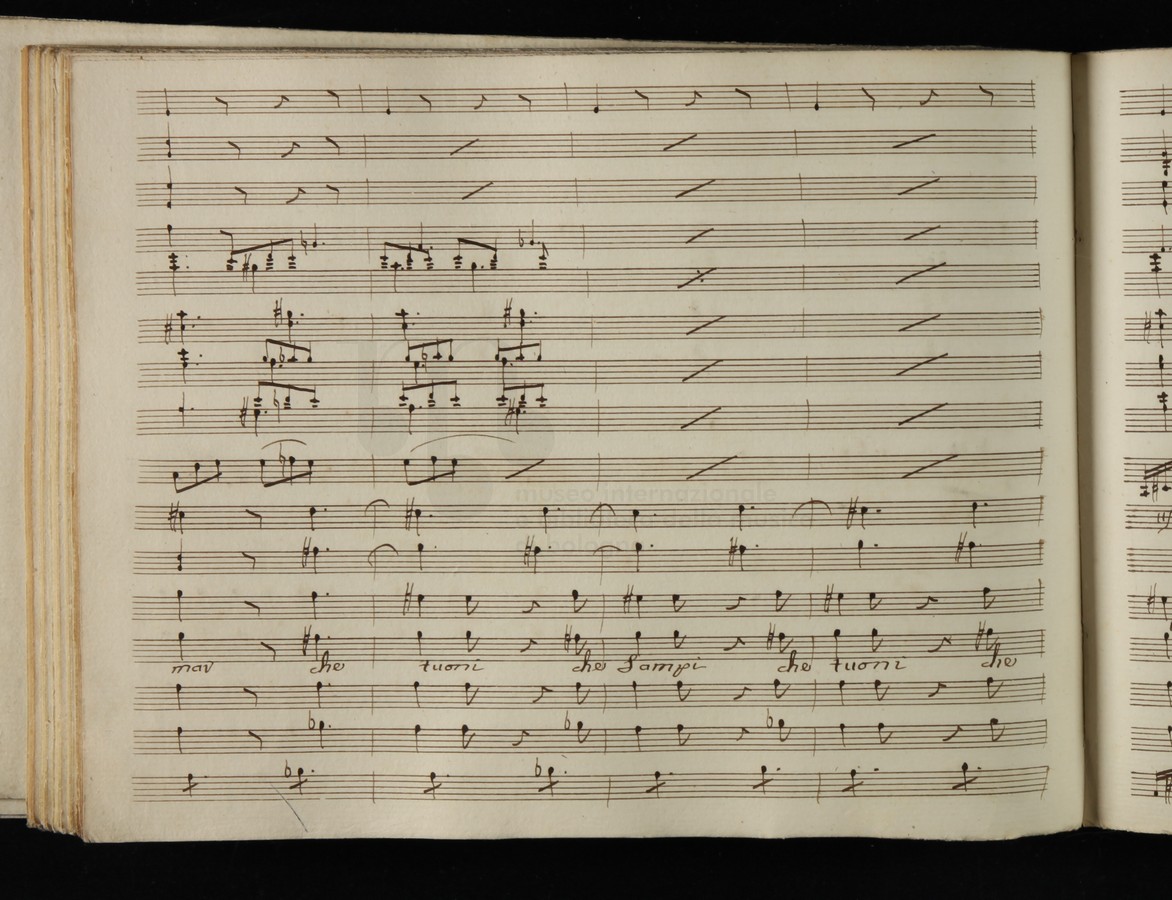 mar che tuoni che Lampi che tuoni che
museo internazionale
e biblioteca della musica
di bologna